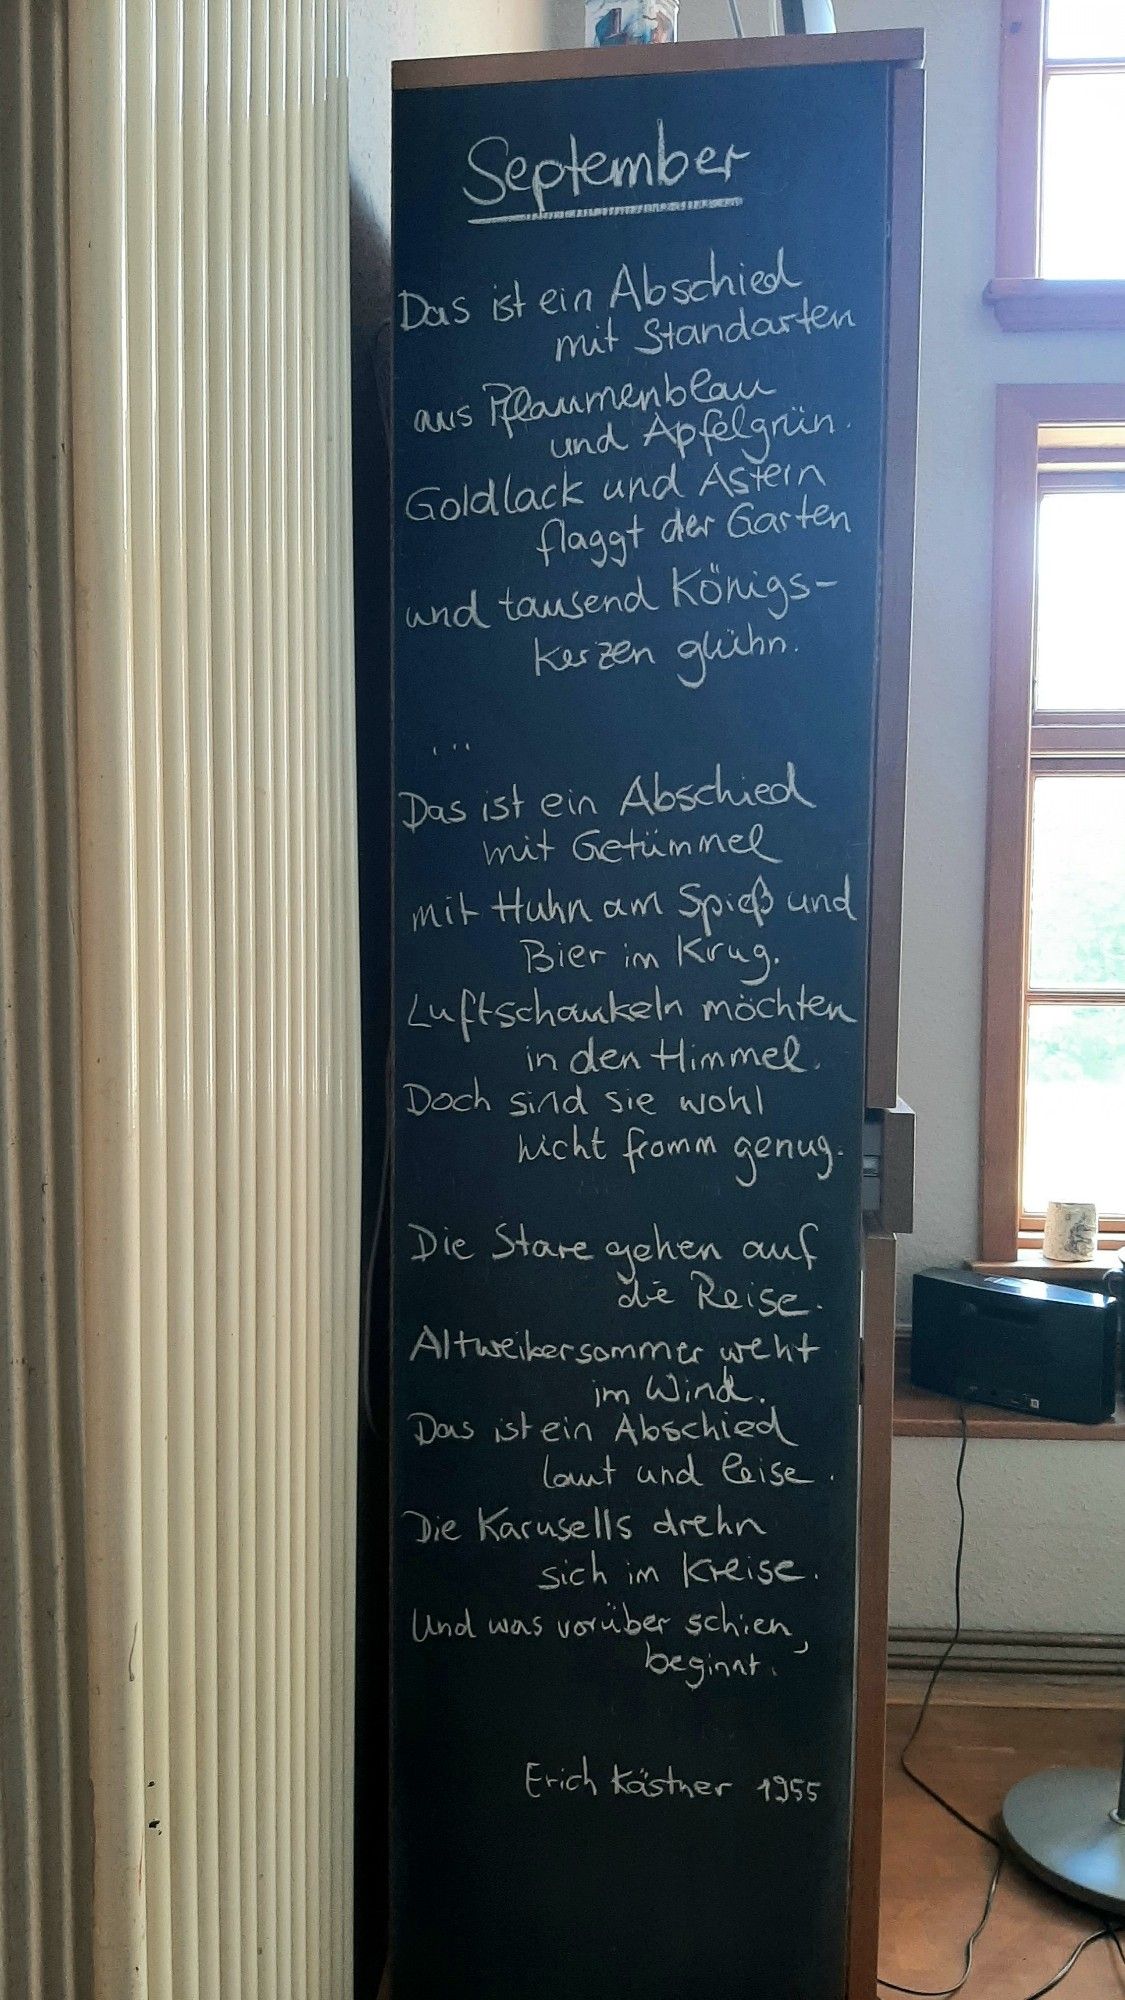 September
Das ist ein Abschied
mit Standarten
aus Pflaumenblau
und Apfelgrün.
Goldlack und Astern
flaggt der Garten
und tausend Königs-
kerzen glühn.
...
Das ist ein Abschied
mit Getümmel
mit Huhn am Spieß und
Bier im Krug.
Luftschaukeln möchten
in den Himmel.
Doch sind sie wohl
nicht fromm genug.
Die Stare gehen auf
die Reise.
Altweibersommer weht
im Wind.
Das ist ein Abschied
laut und leise.
Die Karusells drehn
sich im Kreise.
Und was vorüber schien,
beginnt.
Erich Kästner 1955